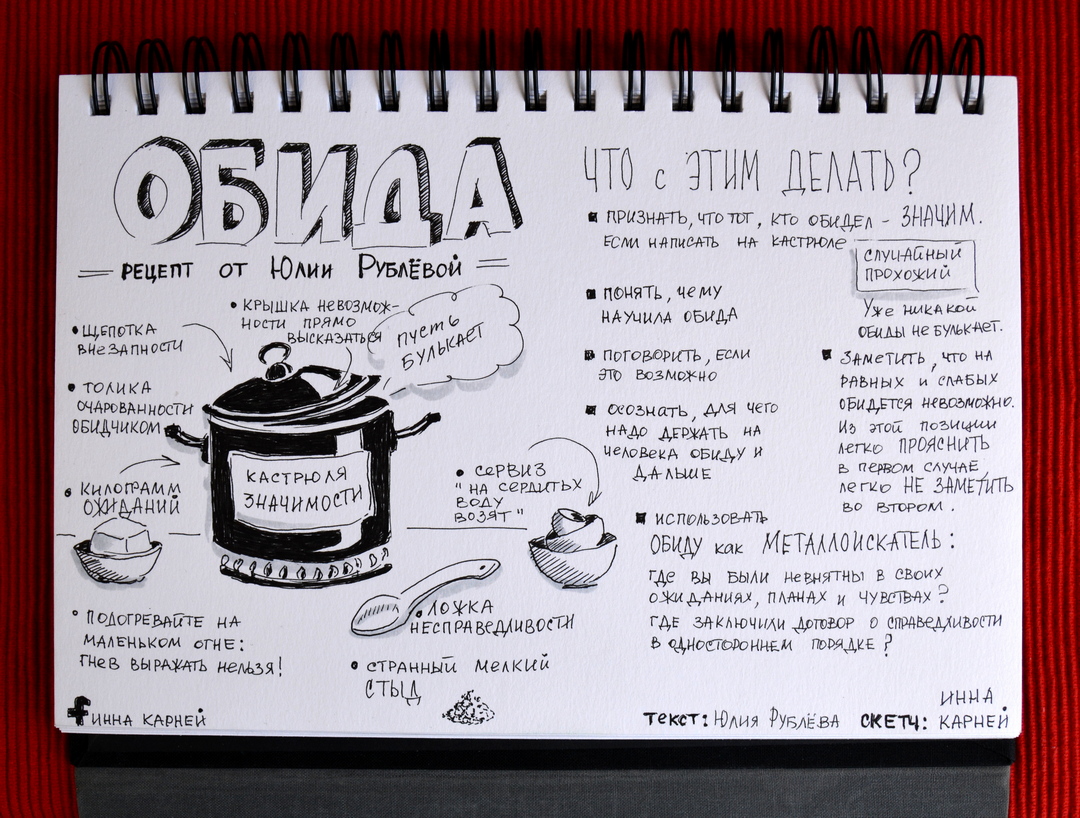 ОБИДА
РЕЦЕПТ ОТ ЮЛИИ РУБЛЁВОЙ
• ЩЕПОТКА
ВНЕЗАПНОСТИ
• КРЫШКА НЕВОЗМОЖ-
НОСТИ ПРЯМО
ВЫСКАЗАТЬСЯ
ПУСТЬ
БУЛЬКАЕТ
• ТОЛИКА
ОЧАРОВАННОСТИ
ОБИДЧИКОМ
• КИЛОГРАММ
ОЖИДАНИЙ
КАСТРЮЛЯ
ЗНАЧИМОСТИ
• СЕРВИЗ
"НА СЕРДИТЫХ
ВОДУ
ВОЗЯТ"
• ПОДОГРЕВАЙТЕ НА
МАЛЕНЬКОМ ОГНЕ:
ГНЕВ ВЫРАЖАТЬ НЕЛЬЗЯ!
• ЛОЖКА
НЕСПРАВЕДЛИВОСТИ
• СТРАННЫЙ МЕЛКИЙ
СТЫД
f ИННА КАРНЕЙ
ЧТО С ЭТИМ ДЕЛАТЬ?
▪ ПРИЗНАТЬ, ЧТО ТОТ, КТО ОБИДЕЛ - ЗНАЧИМ.
ЕСЛИ НАПИСАТЬ НА КАСТРЮЛЕ
СЛУЧАЙНЫЙ
ПРОХОЖИЙ
УЖЕ НИКАКОЙ
ОБИДЫ НЕ БУЛЬКАЕТ.
▪ ПОНЯТЬ, ЧЕМУ
НАУЧИЛА ОБИДА
▪ ПОГОВОРИТЬ, ЕСЛИ
ЭТО ВОЗМОЖНО
▪ ОСОЗНАТЬ, ДЛЯ ЧЕГО
НАДО ДЕРЖАТЬ НА
ЧЕЛОВЕКА ОБИДУ И
ДАЛЬШЕ
▪ ЗАМЕТИТЬ, ЧТО НА
РАВНЫХ И СЛАБЫХ
ОБИДЕТСЯ НЕВОЗМОЖНО.
ИЗ ЭТОЙ ПОЗИЦИИ
ЛЕГКО ПРОЯСНИТЬ
В ПЕРВОМ СЛУЧАЕ,
ЛЕГКО НЕ ЗАМЕТИТЬ
ВО ВТОРОМ.
▪ ИСПОЛЬЗОВАТЬ
ОБИДУ КАК МЕТАЛЛОИСКАТЕЛЬ:
ГДЕ ВЫ БЫЛИ НЕВНЯТНЫ В СВОИХ
ОЖИДАНИЯХ, ПЛАНАХ И ЧУВСТВАХ?
ГДЕ ЗАКЛЮЧИЛИ ДОГОВОР О СПРАВЕДЛИВОСТИ
В ОДНОСТОРОННЕМ ПОРЯДКЕ?
ТЕКСТ: ЮЛИЯ РУБЛЁВА СКЕТЧ: ИННА
КАРНЕЙ